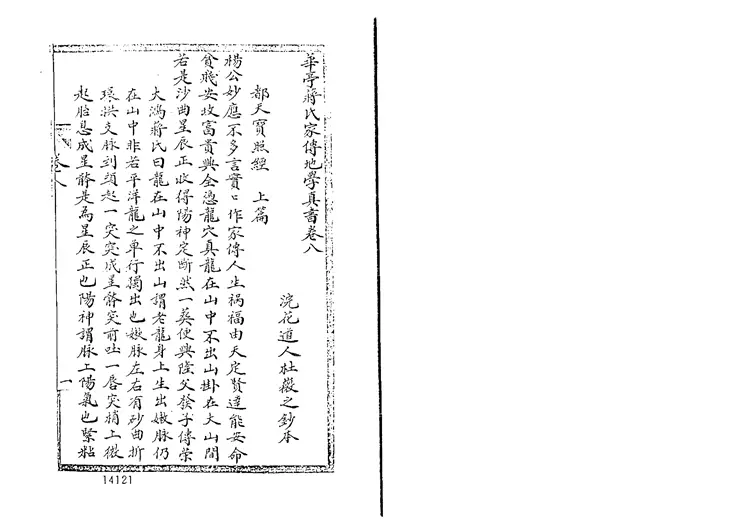 華亭蔣氏家傳地學真書卷八
浣花道人杜薇之鈔本
都天寶照經　上篇
楊公妙應不多言實口作家傳人生禍福由天定賢達能安命
貧賤安坟富貴興全憑龍穴真龍在山中不出山掛在大山間
若是沙曲星辰正收得陽神定斷然一葬便興隆父發子傳榮
大鴻蔣氏曰龍在山中不出山謂老龍身上生出嫩脉仍
在山中非若平洋龍之單行獨出也嫩脉左右有砂曲折
環拱支脉到頭起一突突成星體突前吐一唇突稍上微
起胎息成星體是為星辰正也陽神謂脉上陽氣也緊粘
卷八
一
14121